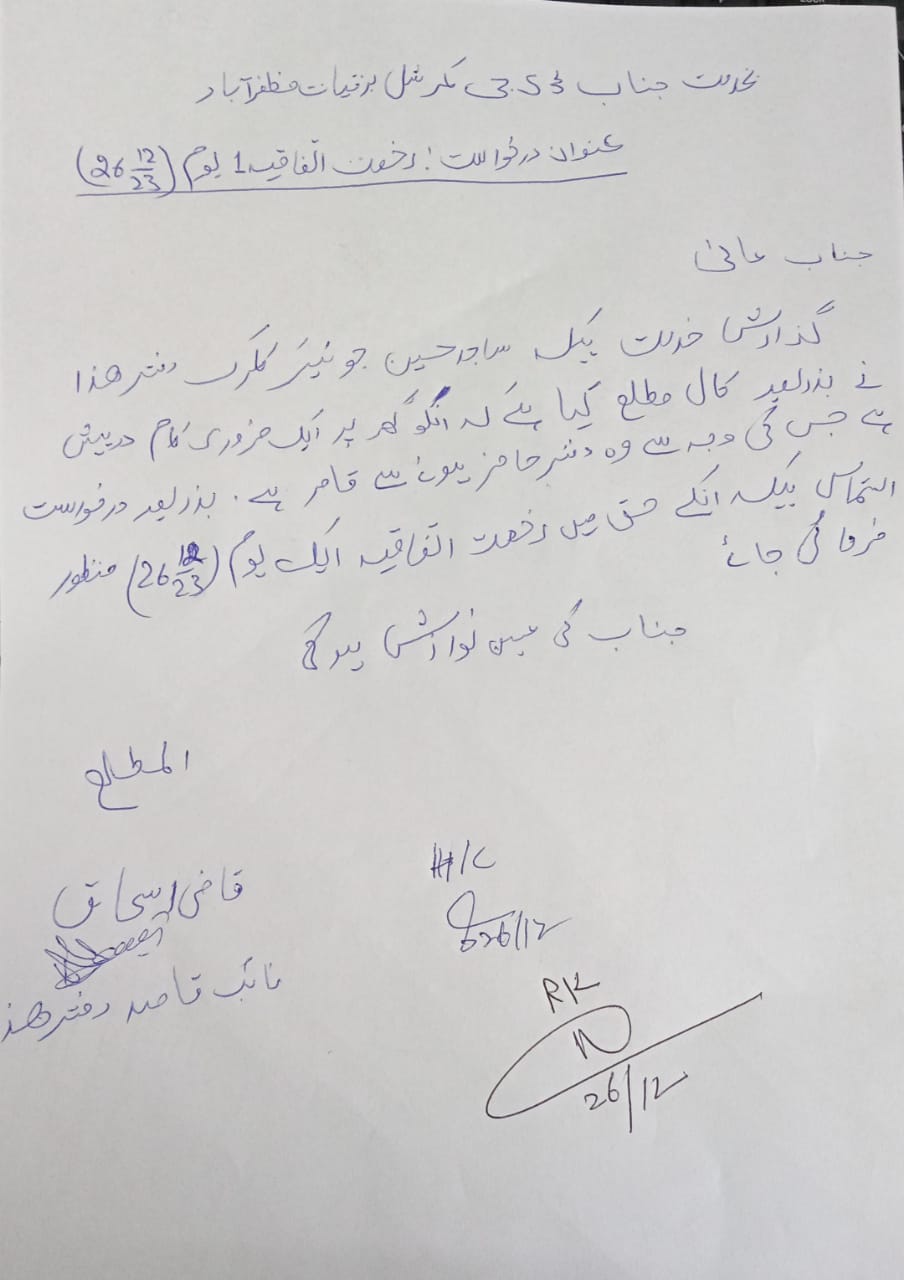 بخدمت جناب ڈی جی کمرشل برقیات مظفرآباد
عنوان درخواست: رخصت اتفاقیہ 1 یوم (26 12/23)
جناب عالی
گذارش خدمت ہیکہ ساجد حسین جونیئر کلرک دفتر ھذا
نے بذریعہ کال مطلع کیا ہے کہ انکو گھر پر ایک ضروری کام درپیش
ہے جس کی وجہ سے وہ دفتر حاضر ہونے سے قاصر ہے۔ بذریعہ درخواست
التماس ہیکہ انکے حق میں رخصت اتفاقیہ ایک یوم (26 12/23) منظور
فرمائی جائے
جناب کی عین نوازش ہوگی
المطلع
قاضی اسحاق
نائب قاصد دفتر ھذا
H/C
26/12
RK
26/12